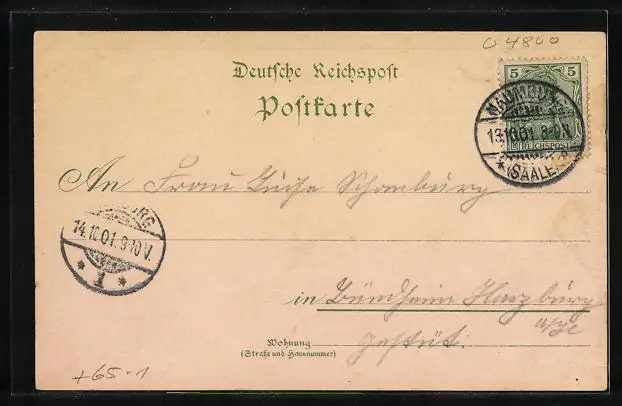 04800
Deutsche Reichspost
Postkarte
5 5
REICHSPOST
NAUMBURG
13.10.01. 8-9N
(SAALE)
An Frau Luise Schomburg
BURG
14.10.01.9-10V.
* 1 *
in Bündheim Harzburg
Gestüt.
Wohnung
(Straße und Hausnummer)
+65.1